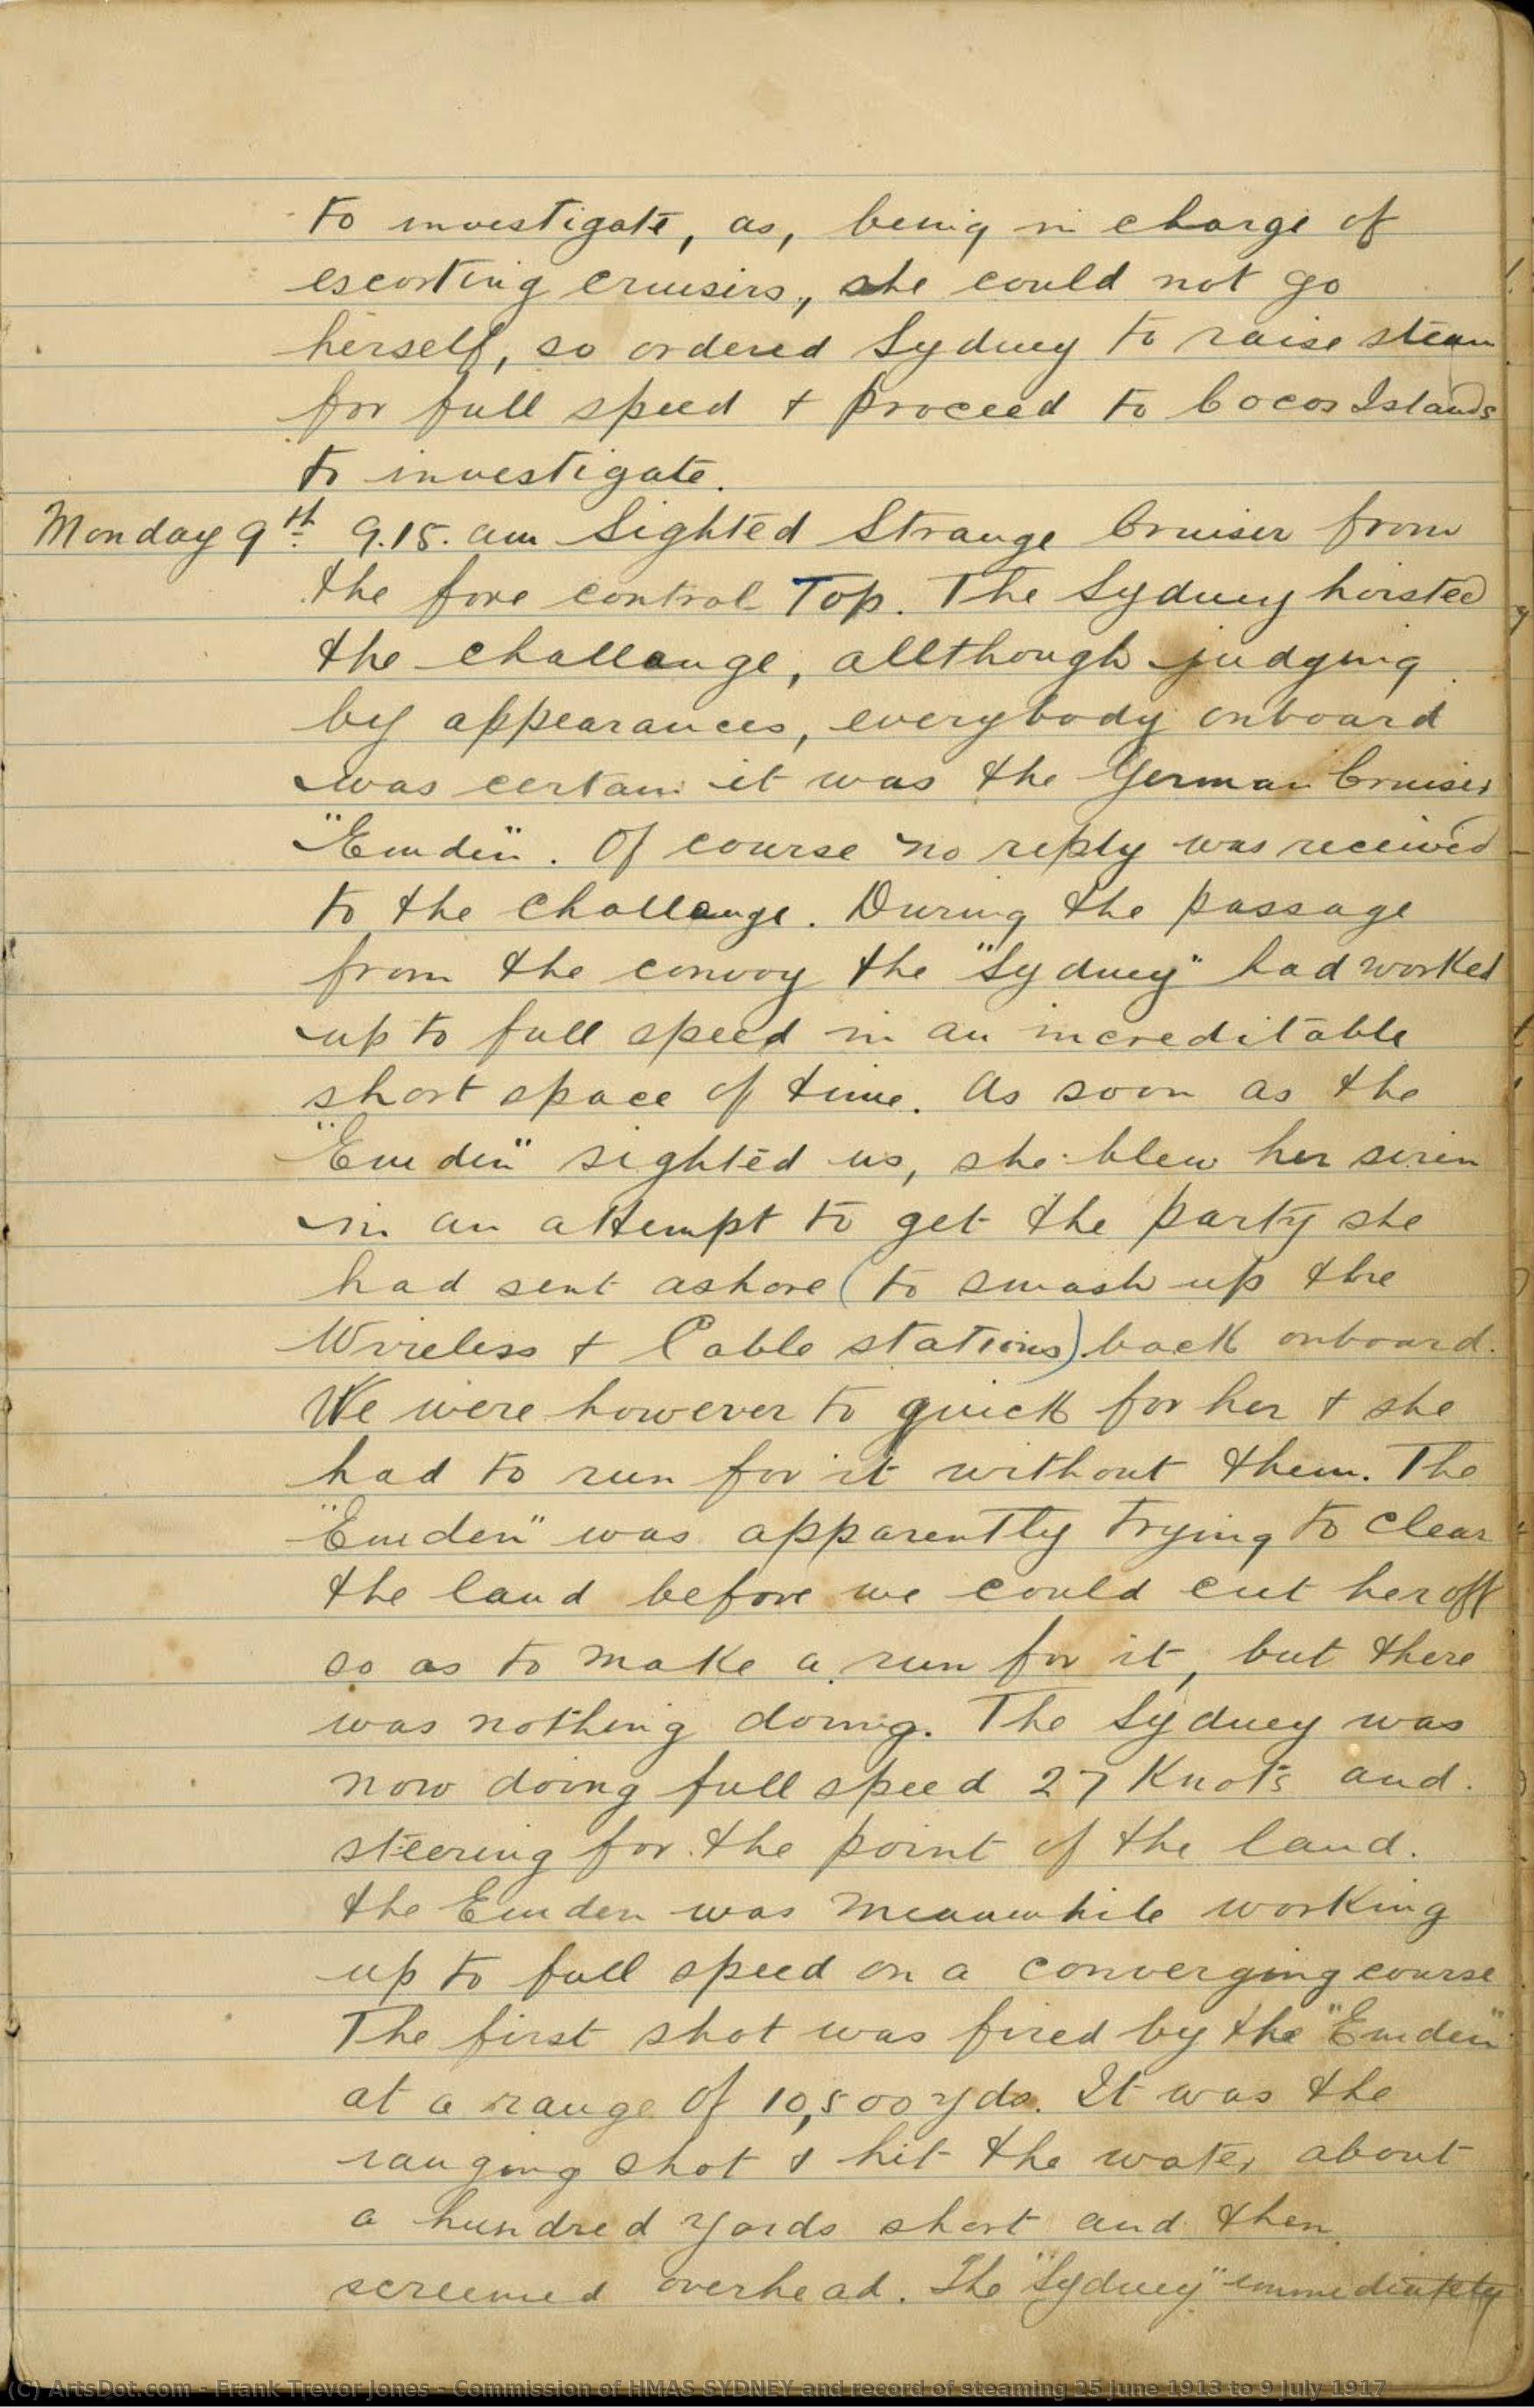 to investigate, as, being in charge of
escorting cruisers, she could not go
herself, so ordered Sydney to raise steam
for full speed + proceed to Cocos Islands
to investigate.
Monday 9th 9.15. am Sighted Strange Cruiser from
the fore control Top. The Sydney hoisted
the challange, allthough judging
by appearances, everybody onboard
was certain it was the German Cruiser
"Emden". Of course no reply was received
to the challange. During the passage
from the convoy the "Sydney" had worked
up to full speed in an increditable
short space of time. As soon as the
"Emden" sighted us, she blew her siren
in an attempt to get the party she
had sent ashore (to smash up the
Wireless + Cable stations) back onboard.
We were however to quick for her + she
had to run for it without them. The
"Emden" was apparently trying to clear
the land before we could cut her off
so as to make a run for it, but there
was nothing doing. The Sydney was
now doing full speed 27 Knots and
steering for the point of the land.
the Emden was meanwhile working
up to full speed on a converging course
The first shot was fired by the "Emden"
at a range of 10,500 yds. It was the
ranging shot + hit the water about
a hundred yards short and then
screemed overhead. The "Sydney" immediately
(C) ArtsDot.com - Frank Trevor Jones - Commission of HMAS SYDNEY and record of steaming 25 June 1913 to 9 July 1917